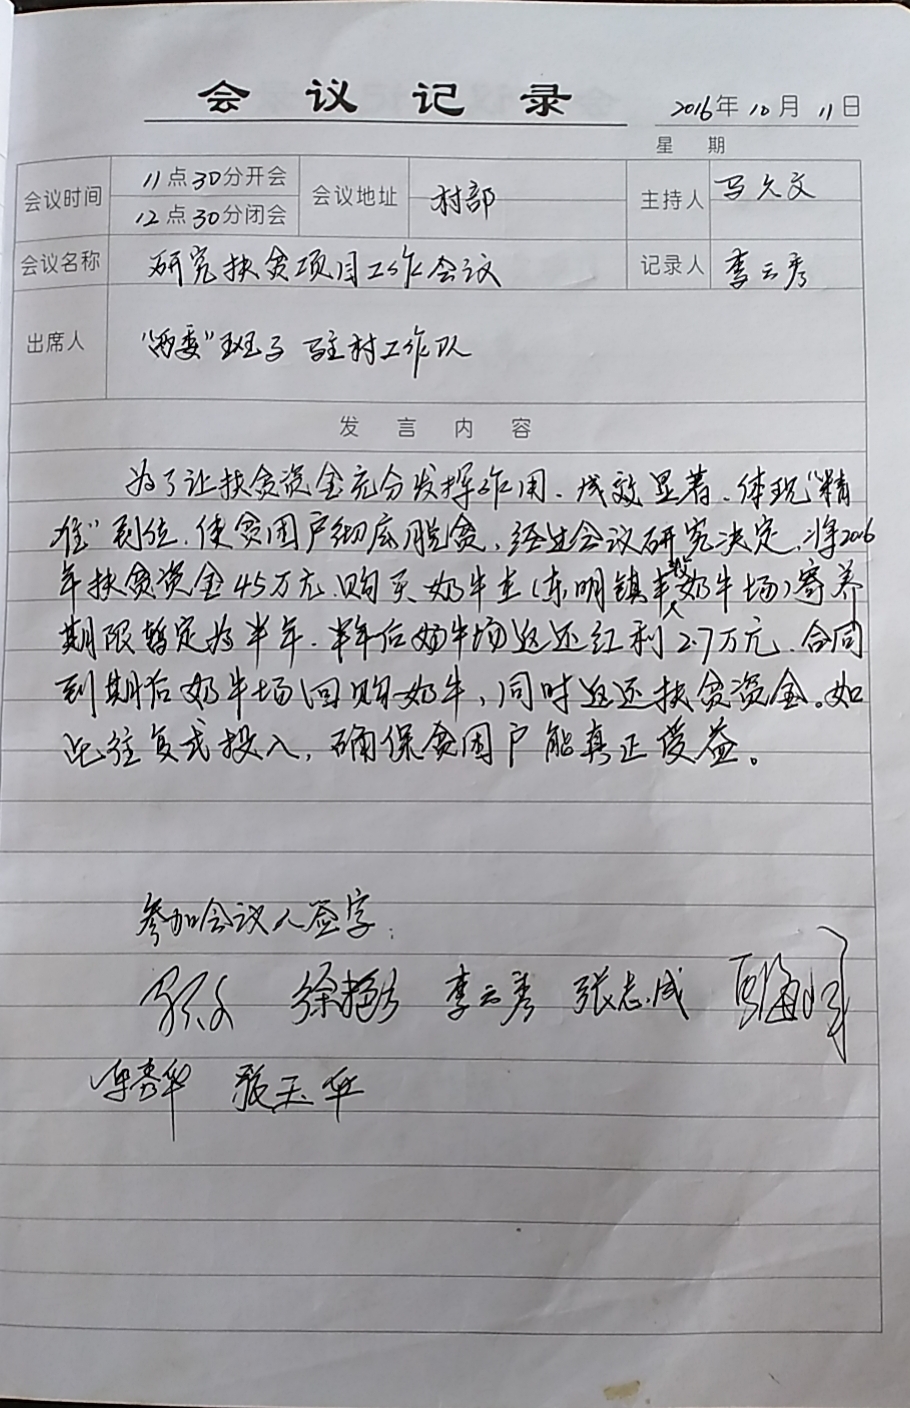 会议记录
2016年10月11日
星期
会议时间 11点30分开会 会议地址 村部 主持人 马久文
12点30分闭会
会议名称 研究扶贫项目工作会议 记录人 李云秀
出席人 “两委”班子 驻村工作队
发言内容
为了让扶贫资金充分发挥作用、成效显著、体现“精
准”到位、使贫困户彻底脱贫、经过会议研究决定、将2016
年扶贫资金45万元、购买奶牛在(东明镇丰 奶牛场)寄养
期限暂定为半年、半年后奶牛场返还红利2.7万元、合同
到期后奶牛场回购奶牛,同时返还扶贫资金。如
此往复式投入,确保贫困户能真正受益。
参加会议人签字:
徐艳 李云秀 张志成
秀华 张玉华